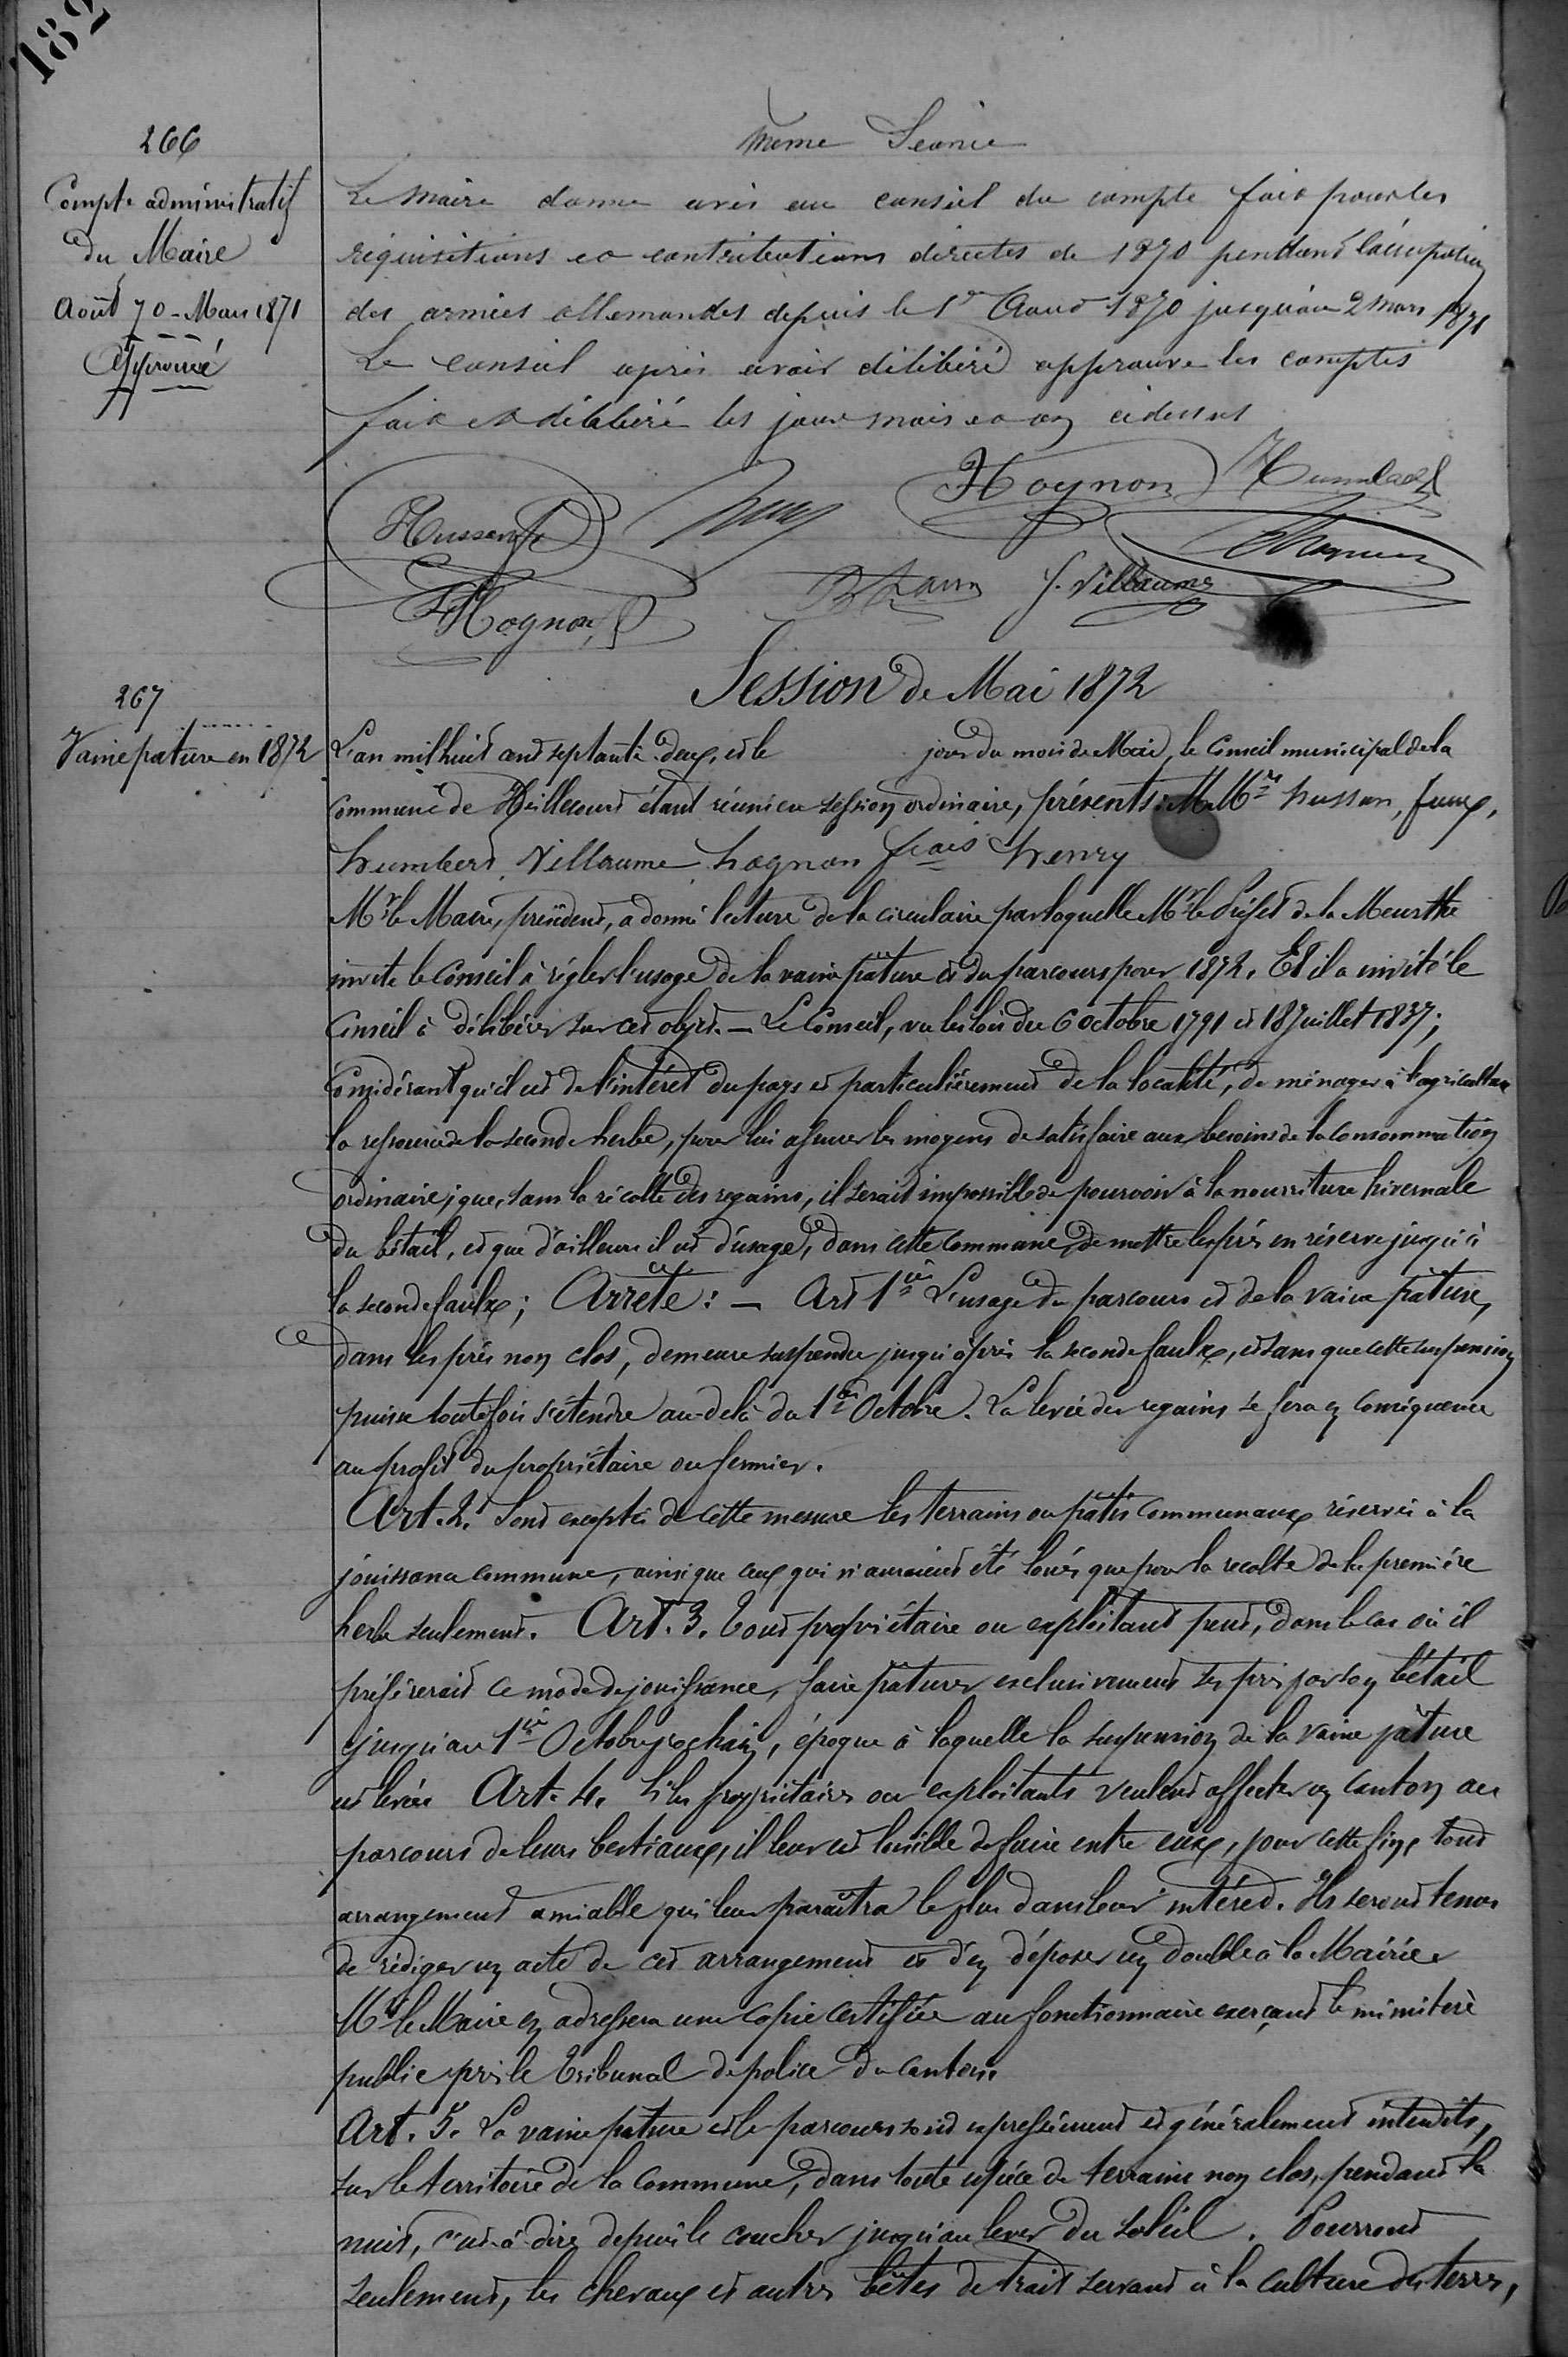 182
266
Compte administratif
du Maire
Août 70 - Mars 1871
Approuvé
même Séance
Le maire donne avis au conseil du compte fait pour les
réquisitions et contributions directes de 1870 pendant l'occupation
des armées allemandes depuis le 1er Aout 1870 jusqu'au 2 mars 1871
Le Conseil après avoir délibéré approuve les comptes
fait et délibéré les jour mois et an cidessus
Hognon Humbert
Husson
Hognon J. Villaume
Session de Mai 1872
267
Vaine pature en 1872
L'an mil huit cent septante-deux, et le jour du mois de Mai, le Conseil municipal de la
Commune de Heillecourt étant réuni en session ordinaire, présents: M.Mrs husson,
humbert, Villaume hognon frais henry
Mr le Maire, président, a donné lecture de la circulaire par laquelle Mr le Préfet de la Meurthe
invite le Conseil à régler l'usage de la vaine pâture et du parcours pour 1872. Et il a invité le
Conseil à délibérer sur cet objet. — Le Conseil, vu les lois des 6 octobre 1791 et 18 Juillet 1837;
Considérant qu'il est de l'intéret du pays et particulièrement de la localité, de ménager à l'agriculture
la ressource de la seconde herbe, pour lui assurer les moyens de satisfaire aux besoins de la consommation
ordinaire; que, sans la récolte des regains, il serait impossible de pourvoir à la nourriture hivernale
du bétail, et que d'ailleurs il est d'usage, dans cette commune, de mettre les prés en réserve jusqu'à
la seconde faulx; Arrête: — Art 1er L'usage du parcours et de la vaine pâture,
dans les prés non clos, demeure suspendu jusqu'après la seconde faulx, et sans que cette suspension
puisse toutefois s'étendre au-delà du 1er Octobre. La levée des regains se fera en conséquence
au profit du propriétaire ou fermier.
Art. 2. Sont exceptés de cette mesure les terrains ou pâtis communaux réservés à la
jouissance commune, ainsi que ceux qui n'auraient été loués que pour la recolte de la première
herbe seulement. Art. 3. Tout propriétaire ou exploitant peut, dans le cas où il
préférerait ce mode de jouissance, faire pâturer exclusivement ses prés par son bétail
jusqu'au 1er Octobre prochain, époque à laquelle la suspension de la vaine pâture
est levée Art. 4. Si les propriétaires ou exploitants veulent affecter un canton au
parcours de leurs bestiaux, il leur est loisible de faire entre eux, pour cette fin, tout
arrangement amiable qui leur paraîtra le plus dans leur intéret. Ils seront tenus
de rédiger un acte de cet arrangement et d'en déposer un double à la Mairie.
Mr le Maire en adressera une copie certifiée au fonctionnaire exerçant le ministère
public près le Tribunal de police du canton.
Art. 5. La vaine pature et le parcours sont expressément et généralement interdits,
sur le territoire de la commune, dans toute espèce de terrains non clos, pendant la
nuit, c'est-à-dire depuis le coucher jusqu'au lever du soleil. Pourront
seulement, les chevaux et autres bêtes de trait servant à la culture des terres,